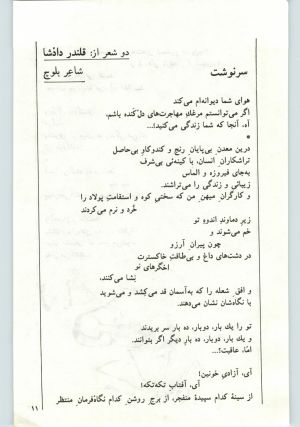 دو شعر از: قلندر دادشا
شاعر بلوچ
سرنوشت
هوای شما دیوانه‌ام می‌کند
اگر می‌توانستم مرغان مهاجرت‌های دل‌کنده باشم،
آه، آنجا که شما زندگی می‌کنید!...
*
درین معدن بی‌پایان رنج و کندوکاو بی‌حاصل
تراشکاران انسان، با کینه‌ئی بی‌شرف
به‌جای فیروزه و الماس
زیبائی و زندگی را می‌تراشند.
و کارگران میهن من که سختی کوه و استقامت پولاد را
خُرد و نرم می‌کردند
زیر دماوند اندوه تو
خم می‌شوند و
چون پیران آرزو
در دشت‌های داغ و بی‌طاقتِ خاکسترت
اخگرهای تو
نِشا می‌کنند،
و افق شعله را که به‌آسمان قد می‌کِشد و می‌شوید
با نگاه‌شان نشان می‌دهند.
تو را یك بار، دوبار، ده بار سر بریدند
و یك بار، دوبار، ده بار دیگر اگر بتوانند.
امّا، عاقبت!...
آی، آزادیِ خونین!
آی، آفتابِ تکه‌تکه!
از سینهٔ کدام سپیدهٔ منفجر، از برج روشن کدام نگاهِ‌فرمان منتظر
۱۱